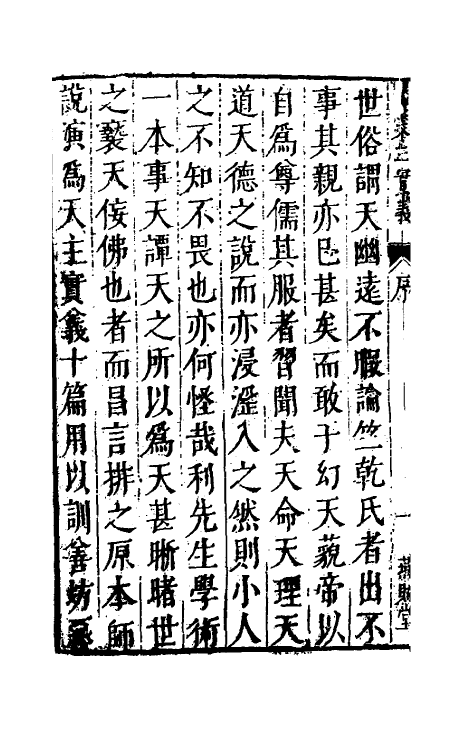 天主實義
序
一
世俗謂天幽遠不暇論竺乾氏者出不
事其親亦已甚矣而敢于幻天藐帝以
自爲尊儒其服者習聞夫天命天理天
道天德之說而亦浸淫入之然則小人
之不知不畏也亦何怪哉利先生學術
一本事天譚天之所以爲天甚晰睹世
之褻天佞佛也者而昌言排之原本師
說演爲天主實義十篇用以訓善坊惡